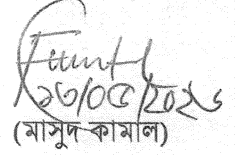 ১৩/০৫/২০২৬
(মাসুদ কামাল)